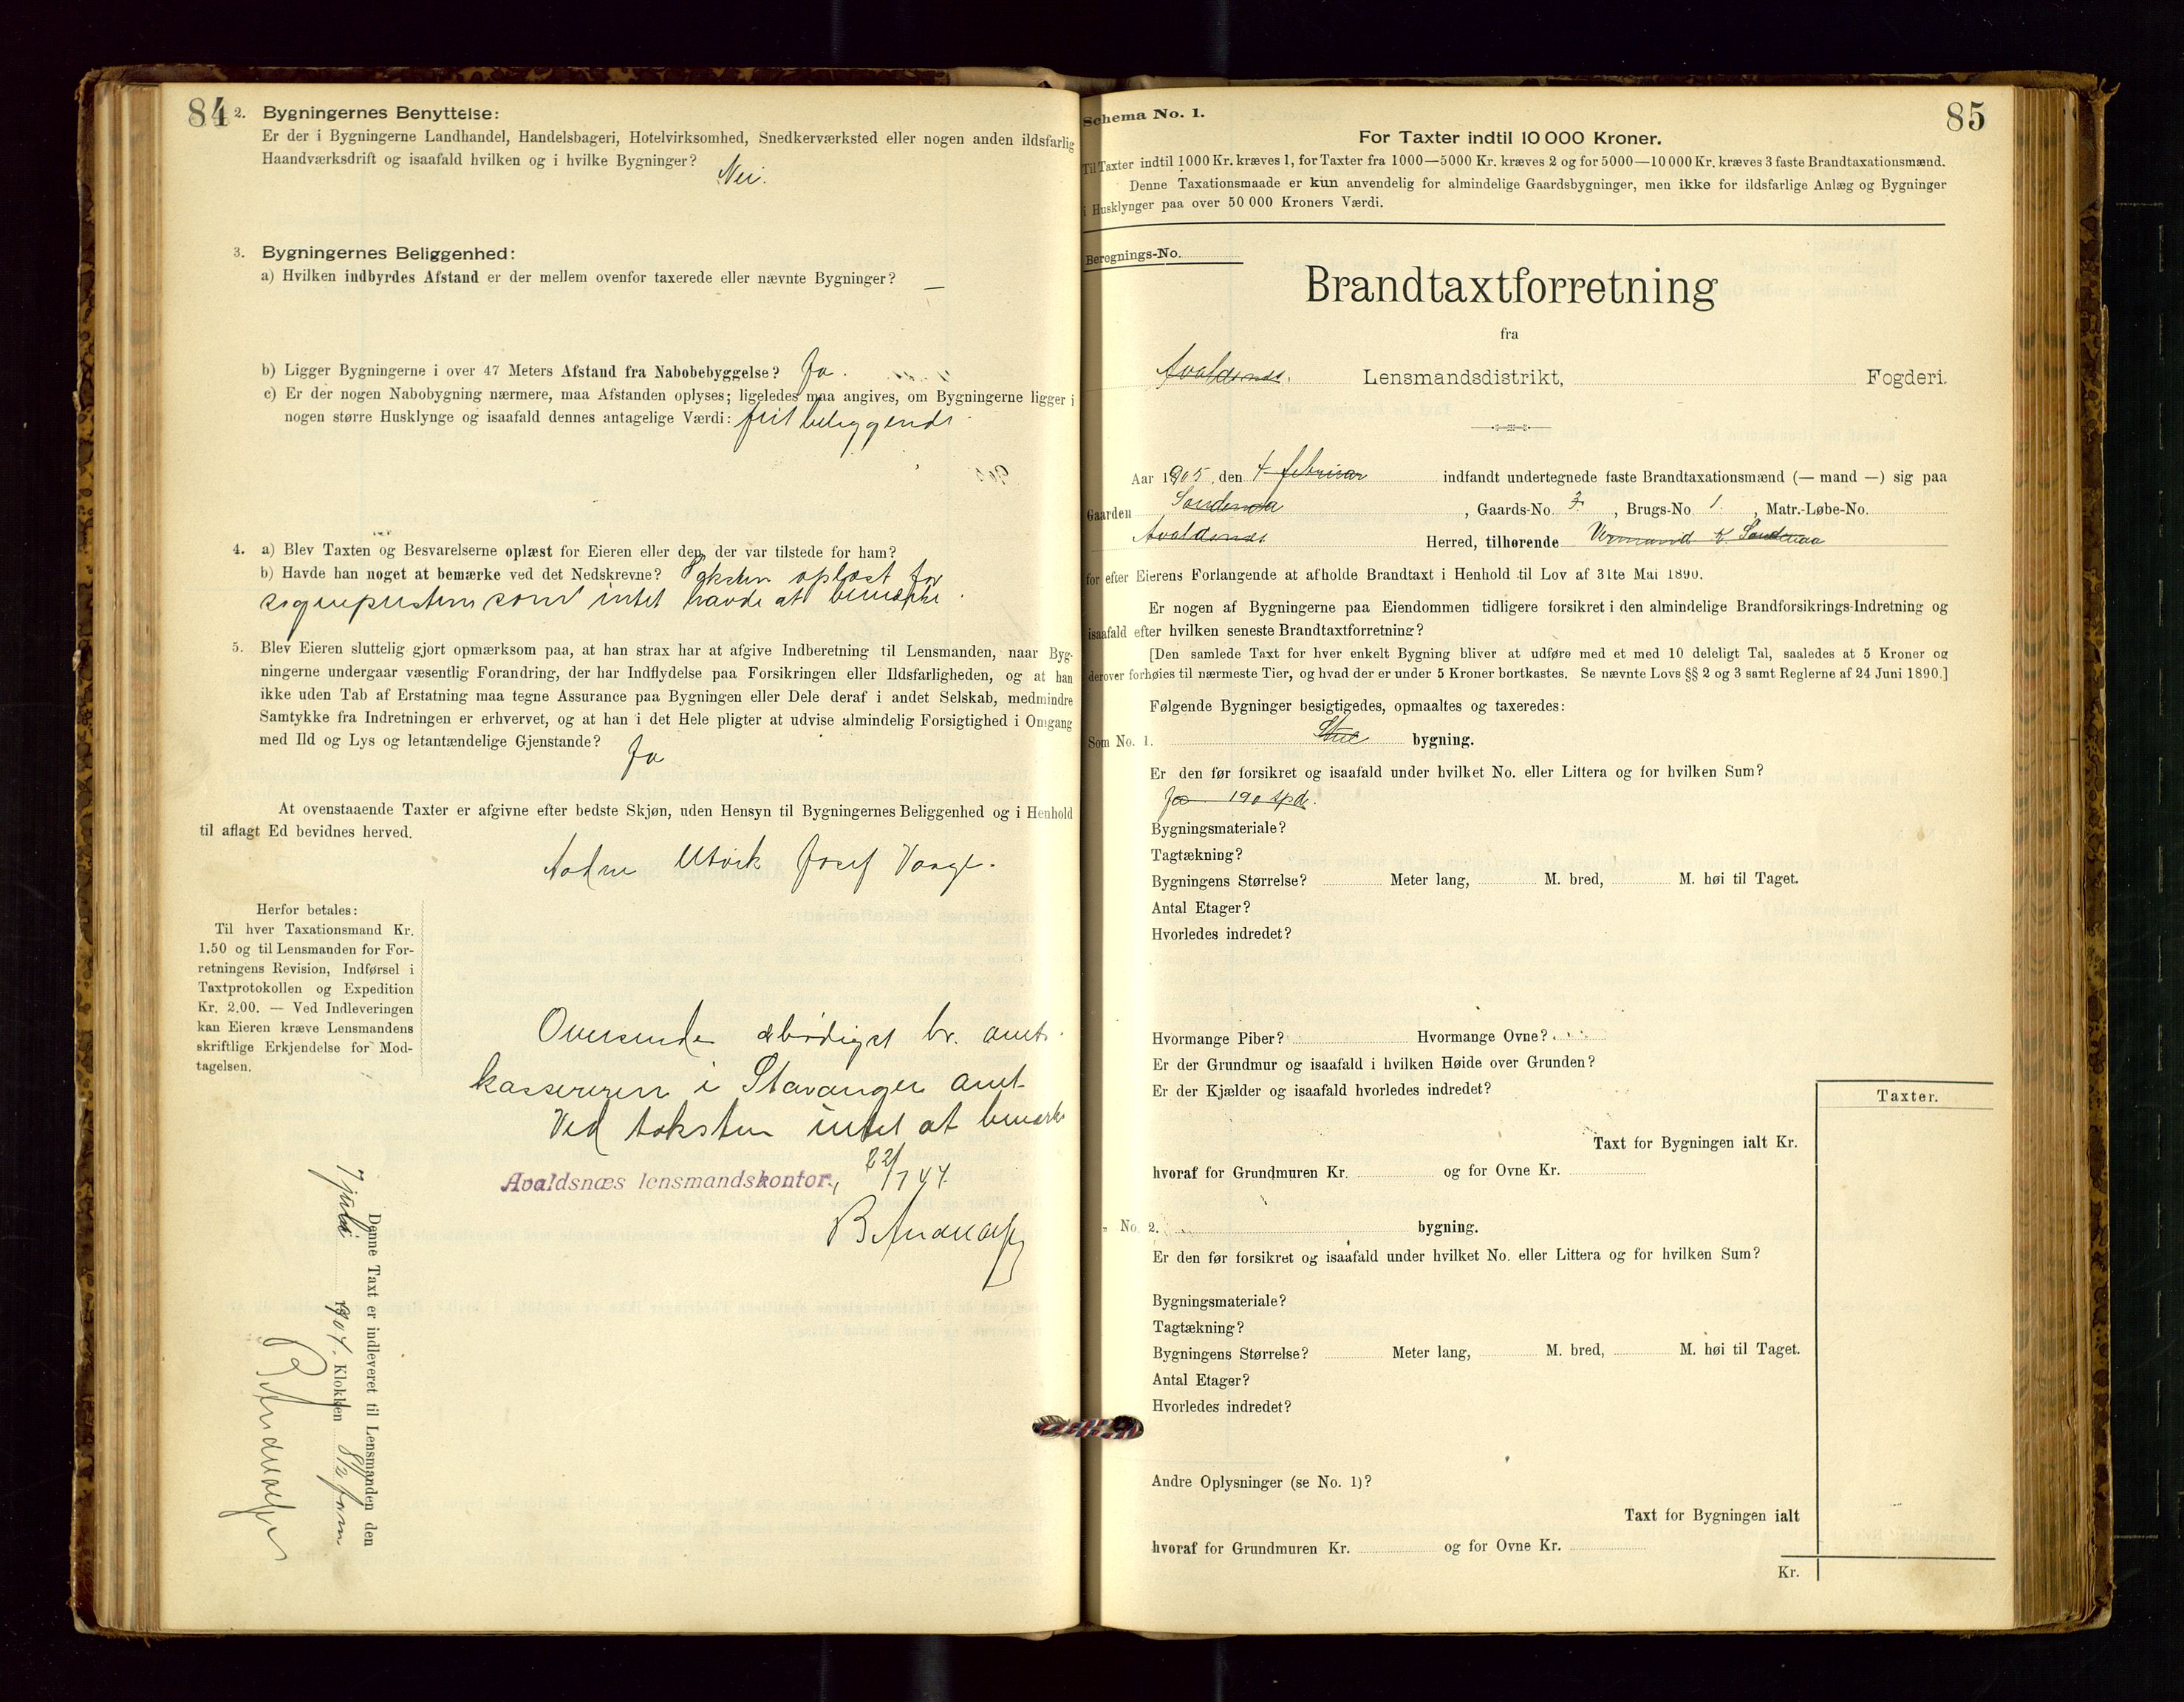 84
2. Bygningernes Benyttelse:
Er der i Bygningerne Landhandel, Handelsbageri, Hotelvirksomhed, Snedkerværksted eller nogen anden ildsfarlig
Haandværksdrift og isaafald hvilken og i hvilke Bygninger?
Nei.
3. Bygningernes Beliggenhed:
a) Hvilken indbyrdes Afstand er der mellem ovenfor taxerede eller nævnte Bygninger? —
b) Ligger Bygningerne i over 47 Meters Afstand fra Nabobebyggelse? Ja.
c) Er der nogen Nabobygning nærmere, maa Afstanden oplyses; ligeledes maa angives, om Bygningerne ligger i
nogen større Husklynge og isaafald dennes antagelige Værdi: frit beliggende
4. a) Blev Taxten og Besvarelserne oplæst for Eieren eller den, der var tilstede for ham?
b) Havde han noget at bemærke ved det Nedskrevne? Taksten oplæst for
som intet havde at bemærke.
5. Blev Eieren sluttelig gjort opmærksom paa, at han strax har at afgive Indberetning til Lensmanden, naar Byg-
ningerne undergaar væsentlig Forandring, der har Indflydelse paa Forsikringen eller Ildsfarligheden, og at han
ikke uden Tab af Erstatning maa tegne Assurance paa Bygningen eller Dele deraf i andet Selskab, medmindre
Samtykke fra Indretningen er erhvervet, og at han i det Hele pligter at udvise almindelig Forsigtighed i Omgang
med Ild og Lys og letantændelige Gjenstande?
Ja
At ovenstaaende Taxter er afgivne efter bedste Skjøn, uden Hensyn til Bygningernes Beliggenhed og i Henhold
til aflagt Ed bevidnes herved.
Aadne Utvik Josef Vaage.
Herfor betales:
Til hver Taxationsmand Kr.
1.50 og til Lensmanden for For-
retningens Revision, Indførsel i
Taxtprotokollen og Expedition
Kr. 2.00. — Ved Indleveringen
kan Eieren kræve Lensmandens
skriftlige Erkjendelse for Mod-
tagelsen.
Oversendes ærbødigst hr. amt-
kassereren i Stavanger amt
Ved taksten intet at bemærke
Avaldsnæs lensmandskontor, 22/7 04.
Denne Taxt er indleveret til Lensmanden den
7 juli 1904. Klokken 8½ form
85
Schema No. 1.
For Taxter indtil 10 000 Kroner.
Til Taxter indtil 1000 Kr. kræves 1, for Taxter fra 1000—5000 Kr. kræves 2 og for 5000—10 000 Kr. kræves 3 faste Brandtaxationsmænd.
Denne Taxationsmaade er kun anvendelig for almindelige Gaardsbygninger, men ikke for ildsfarlige Anlæg og Bygninger
i Husklynger paa over 50 000 Kroners Værdi.
Beregnings-No.
Brandtaxtforretning
fra
Avaldsnes. Lensmandsdistrikt, Fogderi.
Aar 1905, den 4 februar indfandt undertegnede faste Brandtaxationsmænd (— mand —) sig paa
Gaarden Sandenaa, Gaards-No. 3., Brugs-No 1., Matr.-Løbe-No.
Avaldsnes Herred, tilhørende K. Sandenaa
for efter Eierens Forlangende at afholde Brandtaxt i Henhold til Lov af 31te Mai 1890.
Er nogen af Bygningerne paa Eiendommen tidligere forsikret i den almindelige Brandforsikrings-Indretning og
isaafald efter hvilken seneste Brandtaxtforretning?
[Den samlede Taxt for hver enkelt Bygning bliver at udføre med et med 10 deleligt Tal, saaledes at 5 Kroner og
derover forhøies til nærmeste Tier, og hvad der er under 5 Kroner bortkastes. Se nævnte Lovs §§ 2 og 3 samt Reglerne af 24 Juni 1890.]
Følgende Bygninger besigtigedes, opmaaltes og taxeredes:
Som No. 1. Stue bygning.
Er den før forsikret og isaafald under hvilket No. eller Littera og for hvilken Sum?
Ja 190 spd.
Bygningsmateriale?
Tagtækning?
Bygningens Størrelse? Meter lang, M. bred, M. høi til Taget.
Antal Etager?
Hvorledes indredet?
Hvormange Piber? Hvormange Ovne?
Er der Grundmur og isaafald i hvilken Høide over Grunden?
Er der Kjælder og isaafald hvorledes indredet?
Taxter.
Taxt for Bygningen ialt Kr.
hvoraf for Grundmuren Kr. og for Ovne Kr.
„ No. 2. bygning.
Er den før forsikret og isaafald under hvilket No. eller Littera og for hvilken Sum?
Bygningsmateriale?
Tagtækning?
Bygningens Størrelse? Meter lang, M. bred, M. høi til Taget.
Antal Etager?
Hvorledes indredet?
Andre Oplysninger (se No. 1)?
Taxt for Bygningen ialt
hvoraf for Grundmuren Kr. og for Ovne Kr.
Kr.